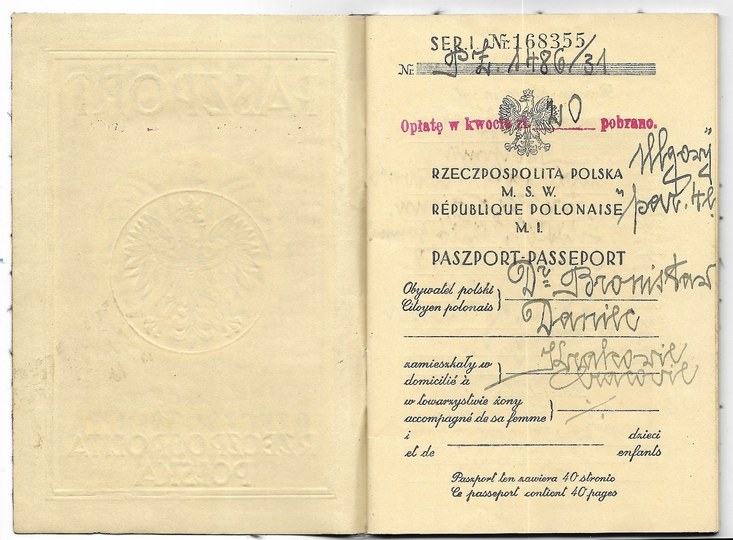 SER. I. Nr 168355
Nr. 1486/31
Opłatę w kwocie zł. 20 pobrano.
"Ulgowy"
RZECZPOSPOLITA POLSKA
M. S. W.
RÉPUBLIQUE POLONAISE
M. I.
PASZPORT-PASSEPORT
Obywatel polski
Citoyen polonais
Dr Bronisław
Daniec
zamieszkały w
domicilié à
Krakowie
w towarzystwie żony
accompagné de sa femme
i dzieci
et de enfants
Paszport ten zawiera 40 stronic
Ce passeport contient 40 pages
PASZPORT
RZECZPOSPOLITA
POLSKA